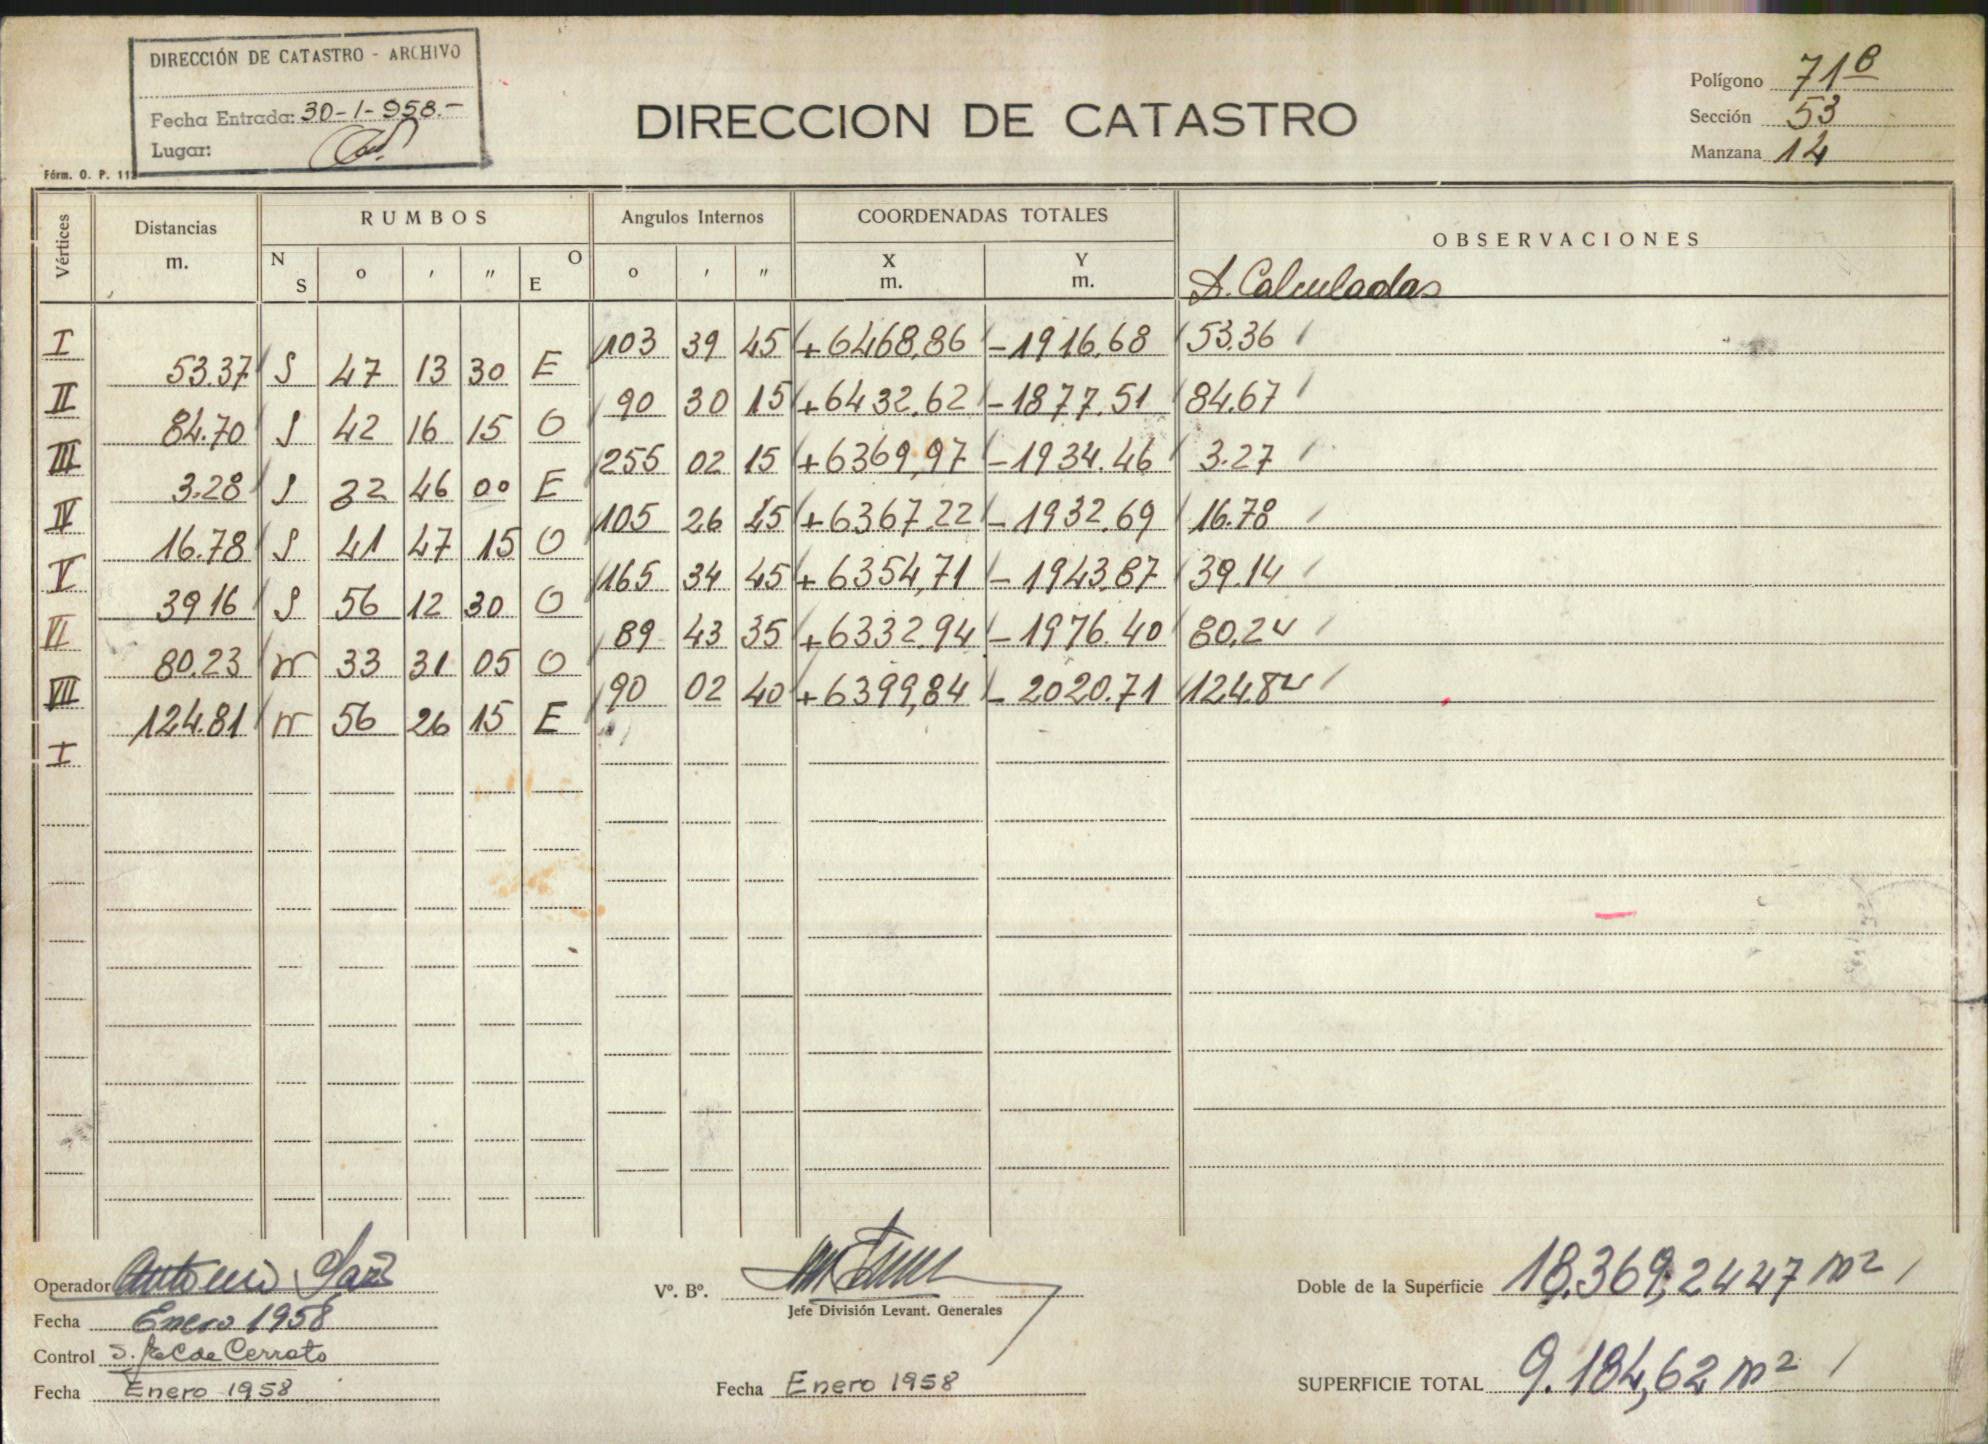 DIRECCIÓN DE CATASTRO - ARCHIVO
Fecha Entrada: 30-1-958.-
Lugar:
Fórm. O. P. 112
DIRECCION DE CATASTRO
Polígono 71B
Sección 53
Manzana 14
Vértices Distancias m. RUMBOS N S o ' " O E Angulos Internos o ' " COORDENADAS TOTALES X m. Y m. OBSERVACIONES
D. Calculadas
I 103 39 45 +6468,86 -1916.68 53.36
53.37 S 47 13 30 E
II 90 30 15 +6432.62 -1877.51 84.67
84.70 S 42 16 15 O
III 255 02 15 +6369,97 -1934.46 3.27
3.28 S 32 46 00 E
IV 105 26 45 +6367.22 -1932.69 16.78
16.78 S 41 47 15 O
V 165 34 45 +6354,71 -1943.87 39.14
39 16 S 56 12 30 O
VI 89 43 35 +6332.94 -1976.40 80.24
80.23 N 33 31 05 O
VII 90 02 40 +6399,84 -2020.71 124.84
124.81 N 56 26 15 E
I
Operador Antonio
Fecha Enero 1958
Control S. Cerrato
Fecha Enero 1958
Vº. Bº.
Jefe División Levant. Generales
Fecha Enero 1958
Doble de la Superficie 18.369,2447 m2
SUPERFICIE TOTAL 9.184,62 m2